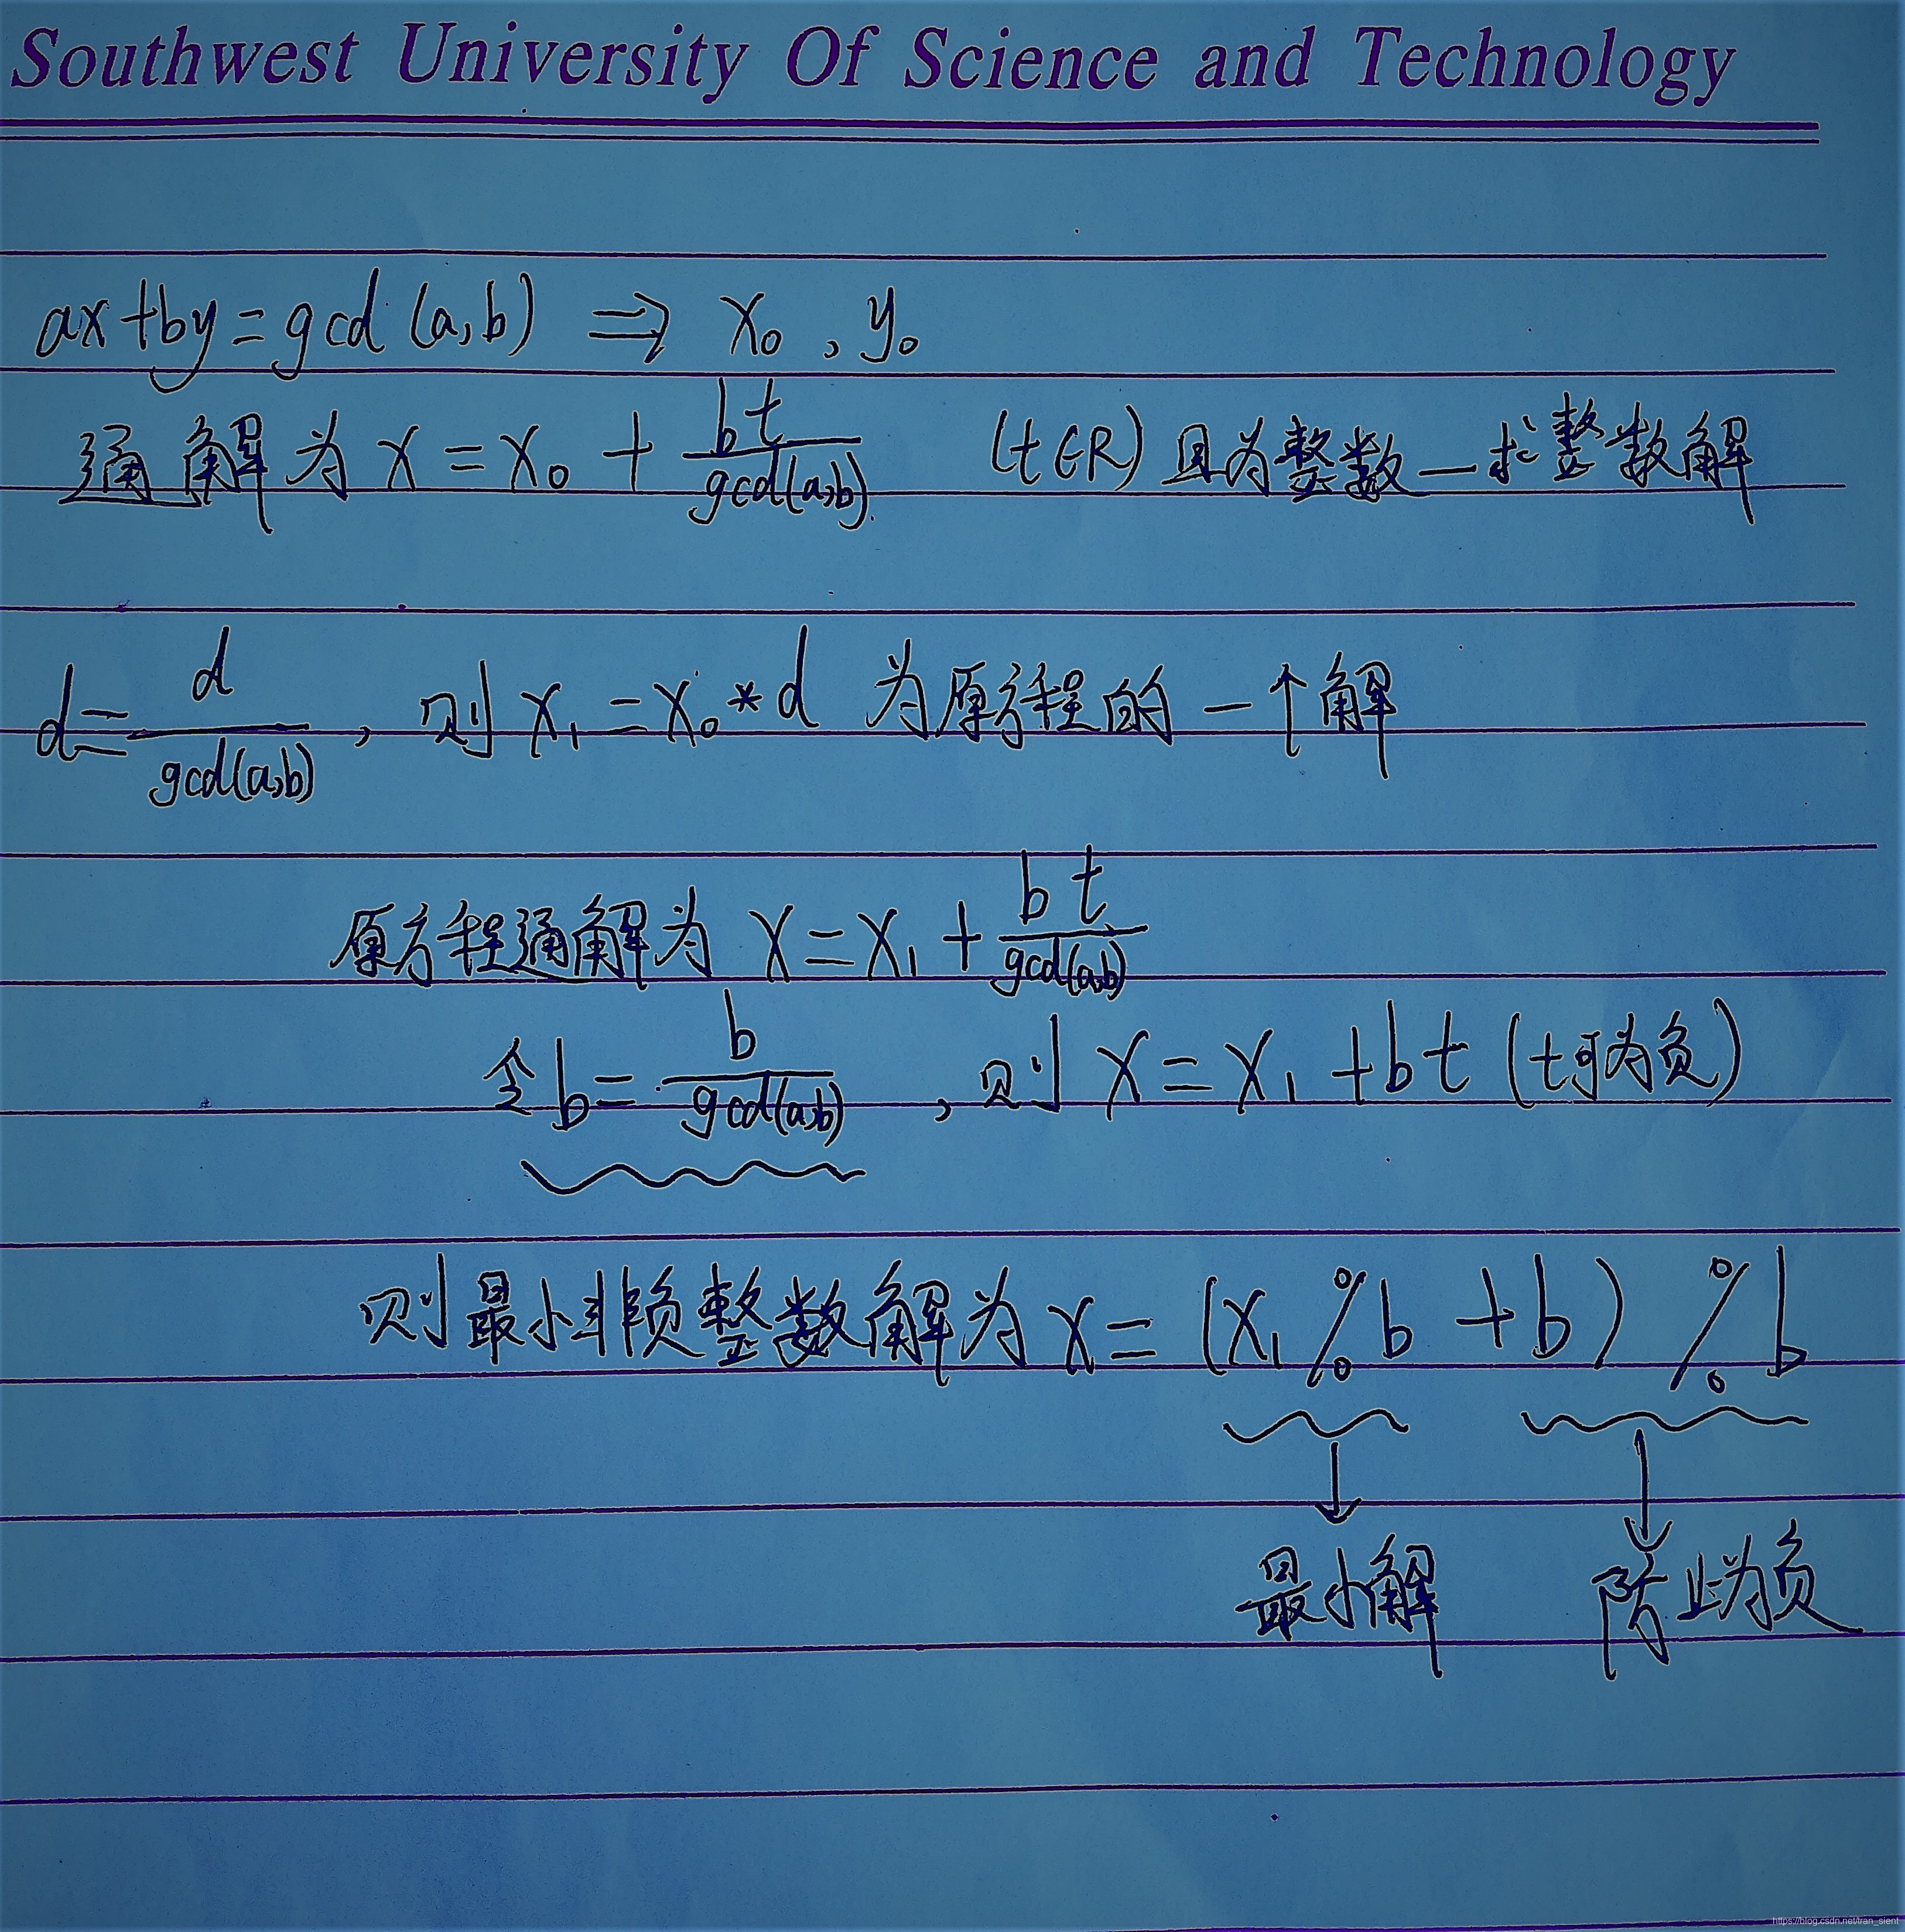 Southwest University Of Science and Technology
ax+by=gcd(a,b) ⇒ x₀, y₀
通解为 x = x₀ + bt/gcd(a,b) (t∈R) 且为整数—求整数解
d = d/gcd(a,b), 则 x₁ = x₀*d 为原方程的一个解
原方程通解为 x = x₁ + bt/gcd(a,b)
令 b = b/gcd(a,b), 则 x = x₁ + bt (t可为负)
则最小非负整数解为 x = (x₁ % b + b) % b
最小解 防止为负
https://blog.csdn.net/tran_sient